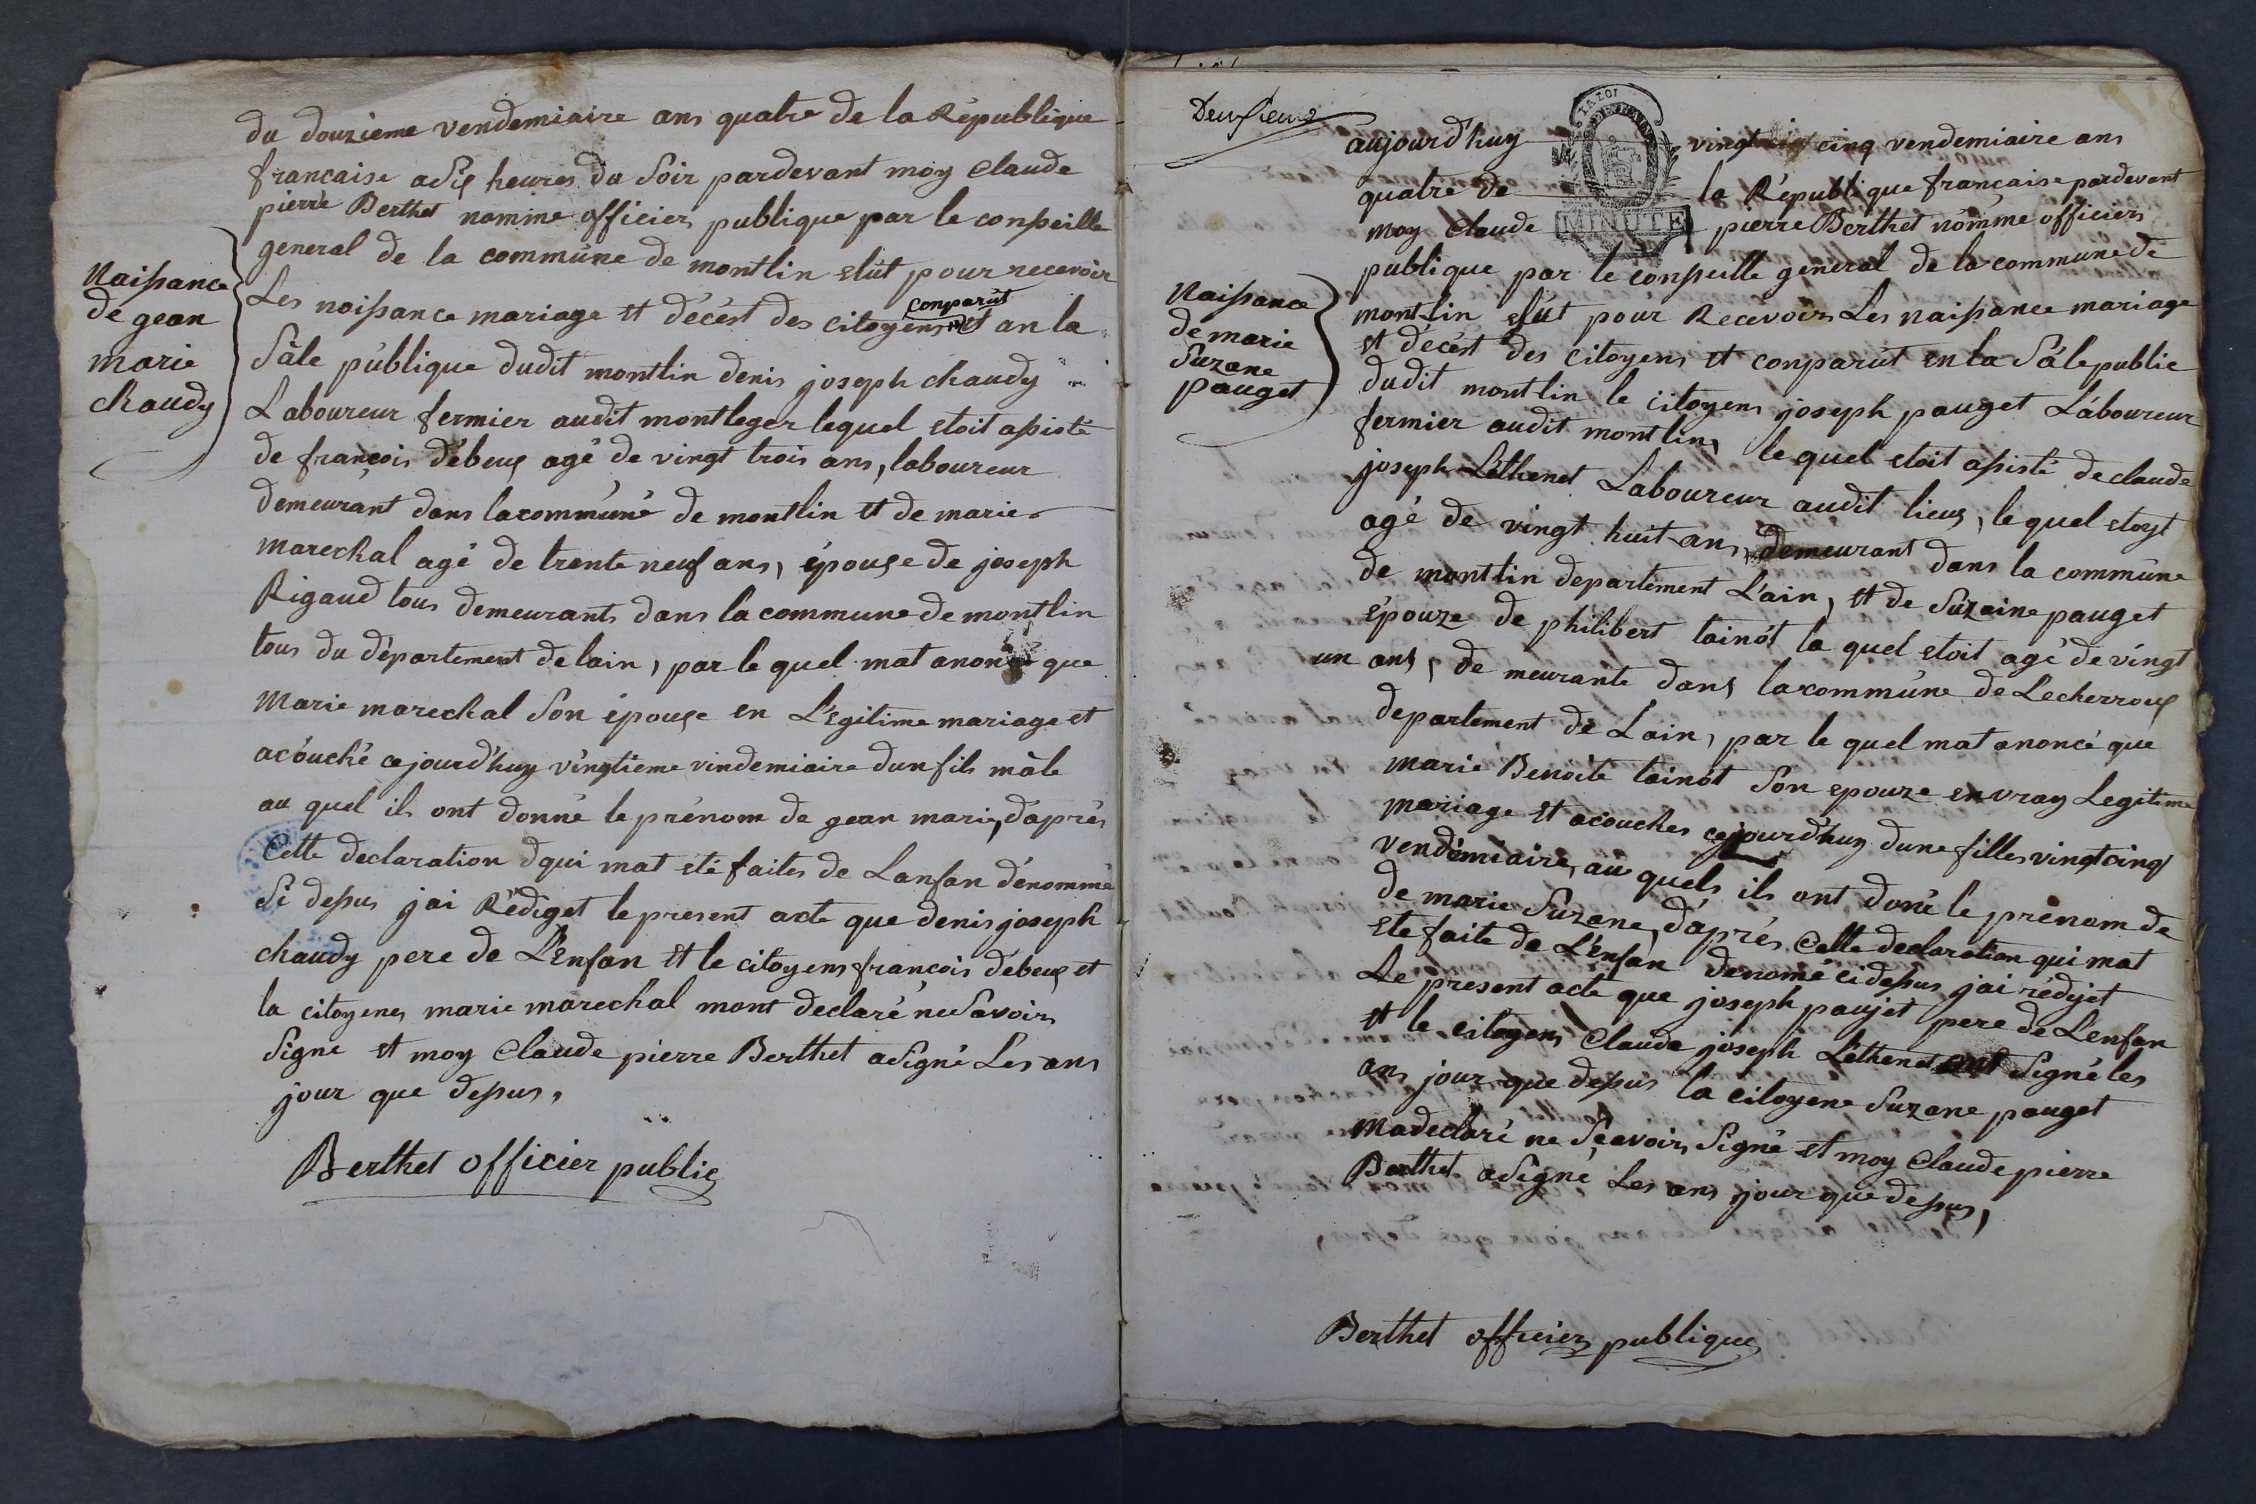 du douzieme vendemiaire ans quatre de la République
francaise a Six heures du Soir pardevant moy Claude
pierre Berthet nomme officier publique par le conseille
general de la commune de montlin elût pour recevoir
Les naissance mariage et décést des citoyens conparût et an la
Sâle publique dudit montlin denis joseph chaudy
Naissance
de gean
marie
chaudy
Laboureur fermier audit montleger lequel etoit assisté
de françois débeux agé de vingt trois ans, laboureur
demeurant dans la commúné de montlin et de marie
marechal agé de trente neuf ans, épouse de joseph
Rigaud tous demeurants dans la commune de montlin
tous du département de lain, par le quel mat anoncé que
Marie marechal Son épouse en Légitime mariage et
acóuché cejourd'huy vingtieme vindemiaire dun fils mâle
au quel ils ont donné le prénom de gean marie, d'aprés
Cette declaration qui mat eté faites de Lanfan dénommé
Si dessus jai Rédiget le present acte que denis joseph
chaudy pere de L'Enfan et le citoyens françois débeux et
la citoyenes marie marechal mont declaré ne Savoir
Signe et moy Claude pierre Berthet a Signé Les ans
jour que dessus,
Berthet officier public
Deuxieme
LA LOI
MINUTE
aujourd'huy vingt cinq vendemiaire ans
quatre de la République francaise pardevant
moy Claude pierre Berthet nomme officier
publique par le conseille general de la commune de
montlin elût pour Recevoir Les naissance mariage
et décést des citoyens et conparût en la Sâle public
dudit montlin le citoyens joseph pauget Láboureur
Naissance
de marie
Suzane
pauget
fermier audit montlin, le quel etoit assisté de claude
joseph Léthenet Laboureur audit lieux, le quel etoyt
agé de vingt huit ans, demeurant dans la commune
de montlin departement L'ain, et de Suzaine pauget
épouze de philibert tainót la quel etoit agé de vingt
un ans, de meurante dans la commúne de Lecherroux
departement de L'ain, par le quel mat anoncé que
marie Benoite tainót Son epouze en vray Legitime
mariage et acouches cejourd'huy dune filles vingt cinq
vendémiaire, au quels ils ont doné le prenom de
de marie Suzane, d'aprés Cette declaration qui mat
eté faite de L'enfan denomé cidessus jai rédijet
Le present acte que joseph paujet pere de Lenfan
et le citoyens Claude joseph Léthenet ont Signé les
ans jour que dessus la citoyene Suzane pauget
ma declaré ne Scavoir Signé et moy Claude pierre
Berthet a Signé Les ans jour que dessus,
Berthet officier publique